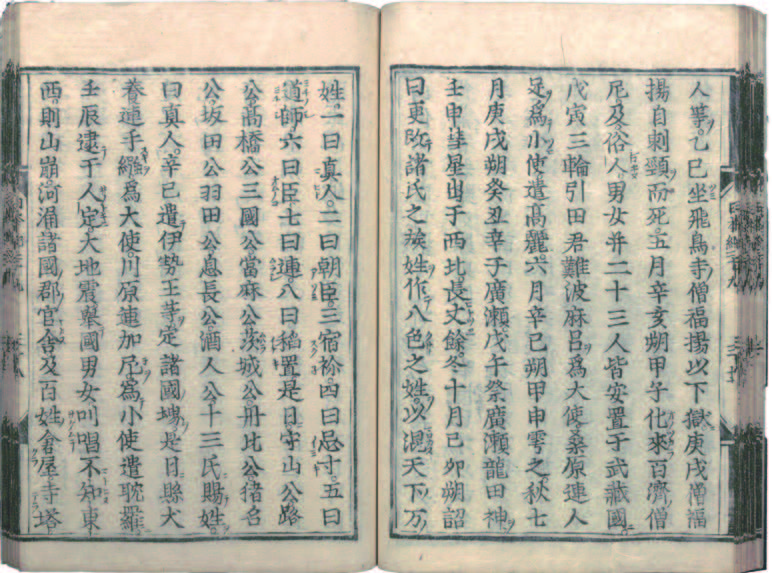 人等乙巳坐飛鳥寺僧福揚以下獄庚戌僧福
揚自刺頸而死五月辛亥朔甲子化來百濟僧
尼及俗人男女并二十三人皆安置于武藏國
戊寅三輪引田君難波麻呂爲大使桑原連人
足爲小使遣高麗六月辛巳朔甲申雩之秋七
月庚戌朔癸丑幸于廣瀬戊午祭廣瀬龍田神
壬申彗星出于西北長丈餘冬十月己卯朔詔
曰更改諸氏之族姓作八色之姓以混天下万
姓一曰真人二曰朝臣三宿祢四曰忌寸五曰
道師六曰臣七曰連八曰稻置是日守山公路
公高橋公三國公當麻公茨城公丹比公猪名
公坂田公羽田公息長公酒人公十三氏賜姓
曰真人辛巳遣伊勢王等定諸國堺是日縣犬
養連手繦爲大使川原連加尼爲小使遣耽羅
壬辰逮于人定大地震擧國男女叫唱不知東
西則山崩河涌諸國郡官舎及百姓倉屋寺塔